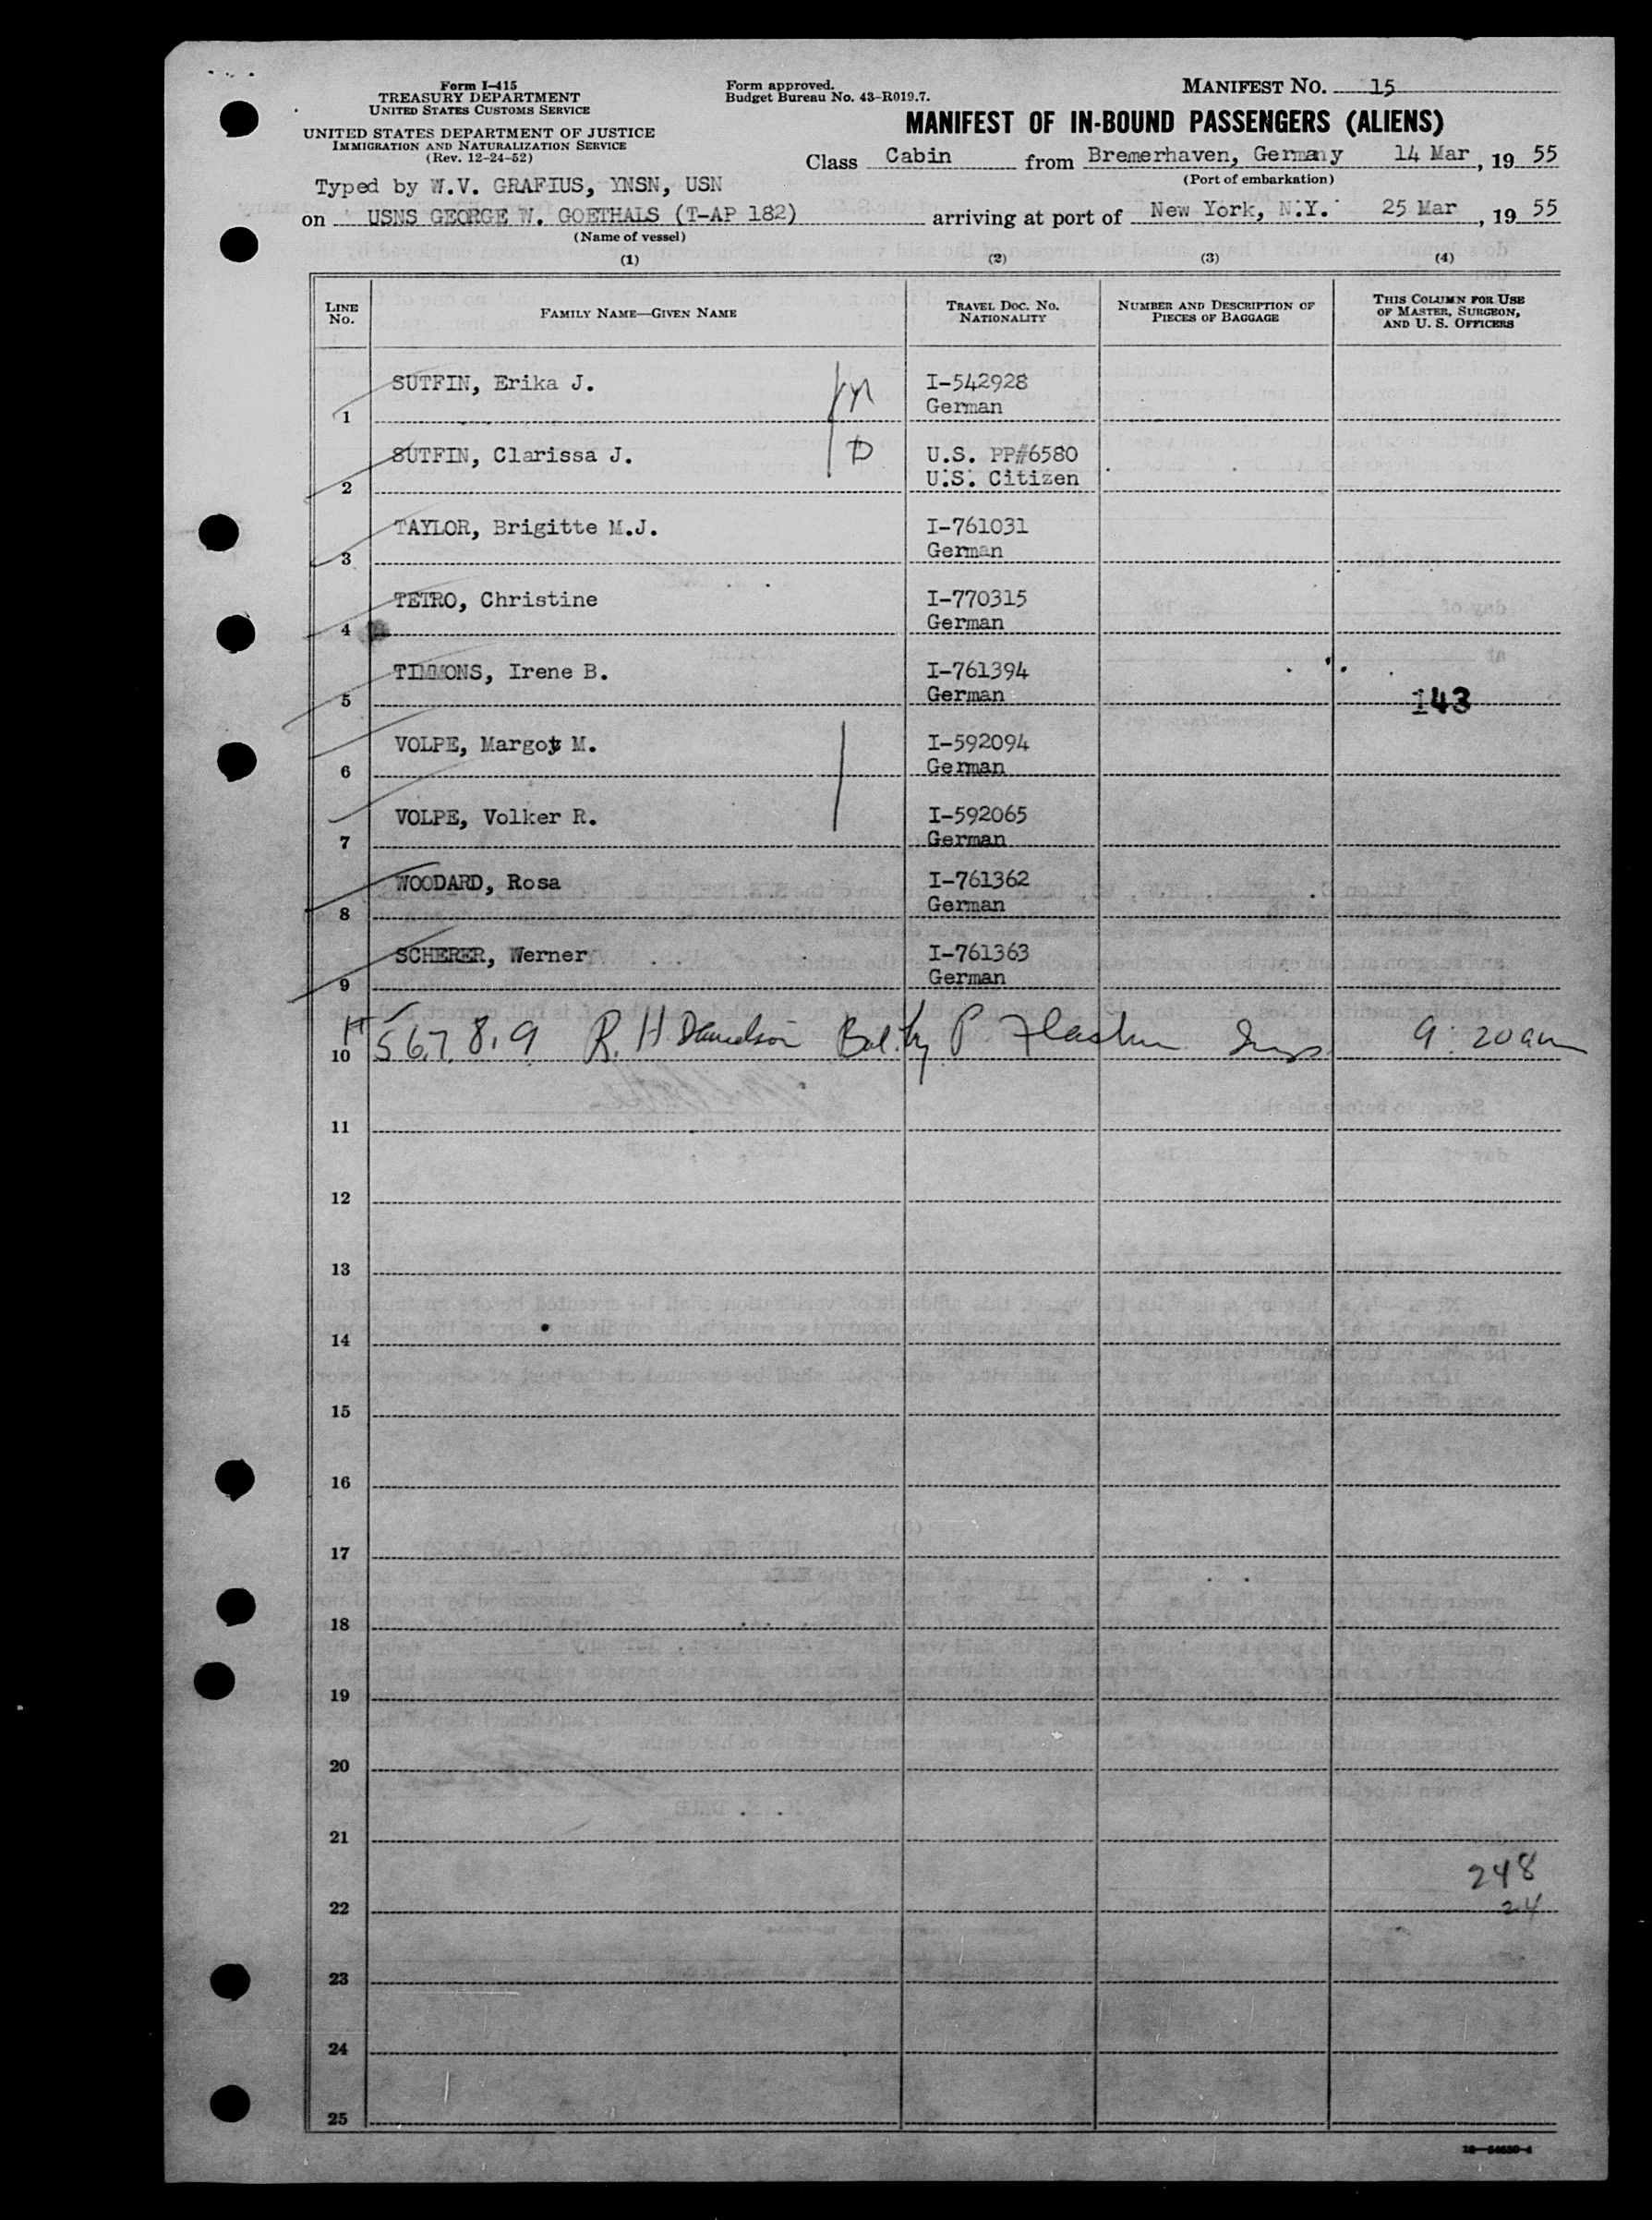 Form I-415
TREASURY DEPARTMENT
UNITED STATES CUSTOMS SERVICE
UNITED STATES DEPARTMENT OF JUSTICE
IMMIGRATION AND NATURALIZATION SERVICE
(Rev. 12-24-52)
Form approved.
Budget Bureau No. 43-R019.7.
MANIFEST NO. 15
MANIFEST OF IN-BOUND PASSENGERS (ALIENS)
Class Cabin from Bremerhaven, Germany 14 Mar, 19 55
(Port of embarkation)
Typed by W.V. GRAFIUS, YNSN, USN
on USNS GEORGE W. GOETHALS (T-AP 182) arriving at port of New York, N.Y. 25 Mar, 19 55
(Name of vessel)
(1) (2) (3) (4)
LINE NO. FAMILY NAME—GIVEN NAME TRAVEL DOC. NO. NATIONALITY NUMBER AND DESCRIPTION OF PIECES OF BAGGAGE THIS COLUMN FOR USE OF MASTER, SURGEON, AND U. S. OFFICERS
SUTFIN, Erika J. I-542928
1 German
SUTFIN, Clarissa J. D U.S. PP#6580
2 U.S. Citizen
TAYLOR, Brigitte M.J. I-761031
3 German
TETRO, Christine I-770315
4 German
TIMMONS, Irene B. I-761394
5 German 143
VOLPE, Margot M. I-592094
6 German
VOLPE, Volker R. I-592065
7 German
WOODARD, Rosa I-761362
8 German
SCHERER, Werner I-761363
9 German
10 5 6. 7. 8. 9 R. H. Davidson Bal. by P 9:20 am
11
12
13
14
15
16
17
18
19
20
21
248
22 24
23
24
25